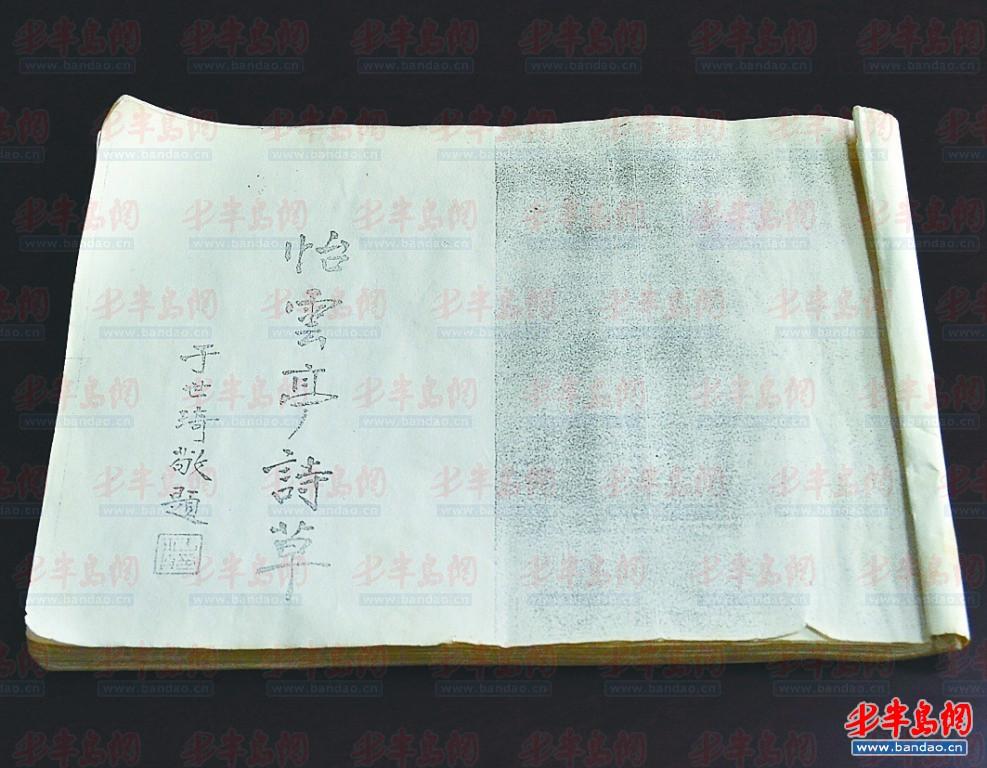 怡雲亭詩草
于世琦敬題
半岛網
www.bandao.cn